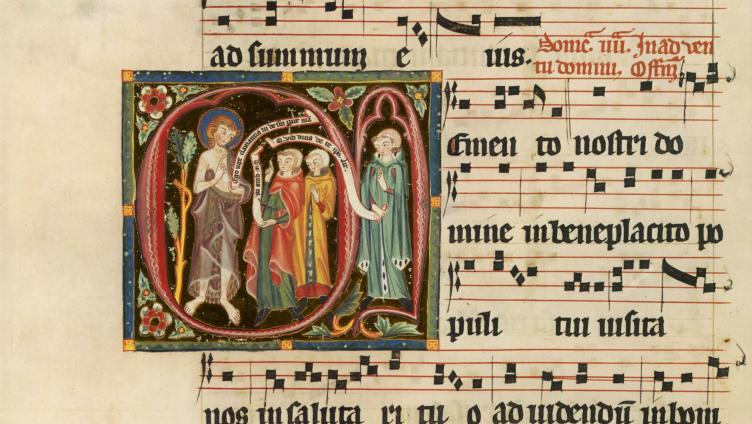 ad summum e ius.
In adven
tu domini.
emen to nostri do
mine in beneplacito po
puli tui visita
nos in saluta ri tu o ad videndū in boni